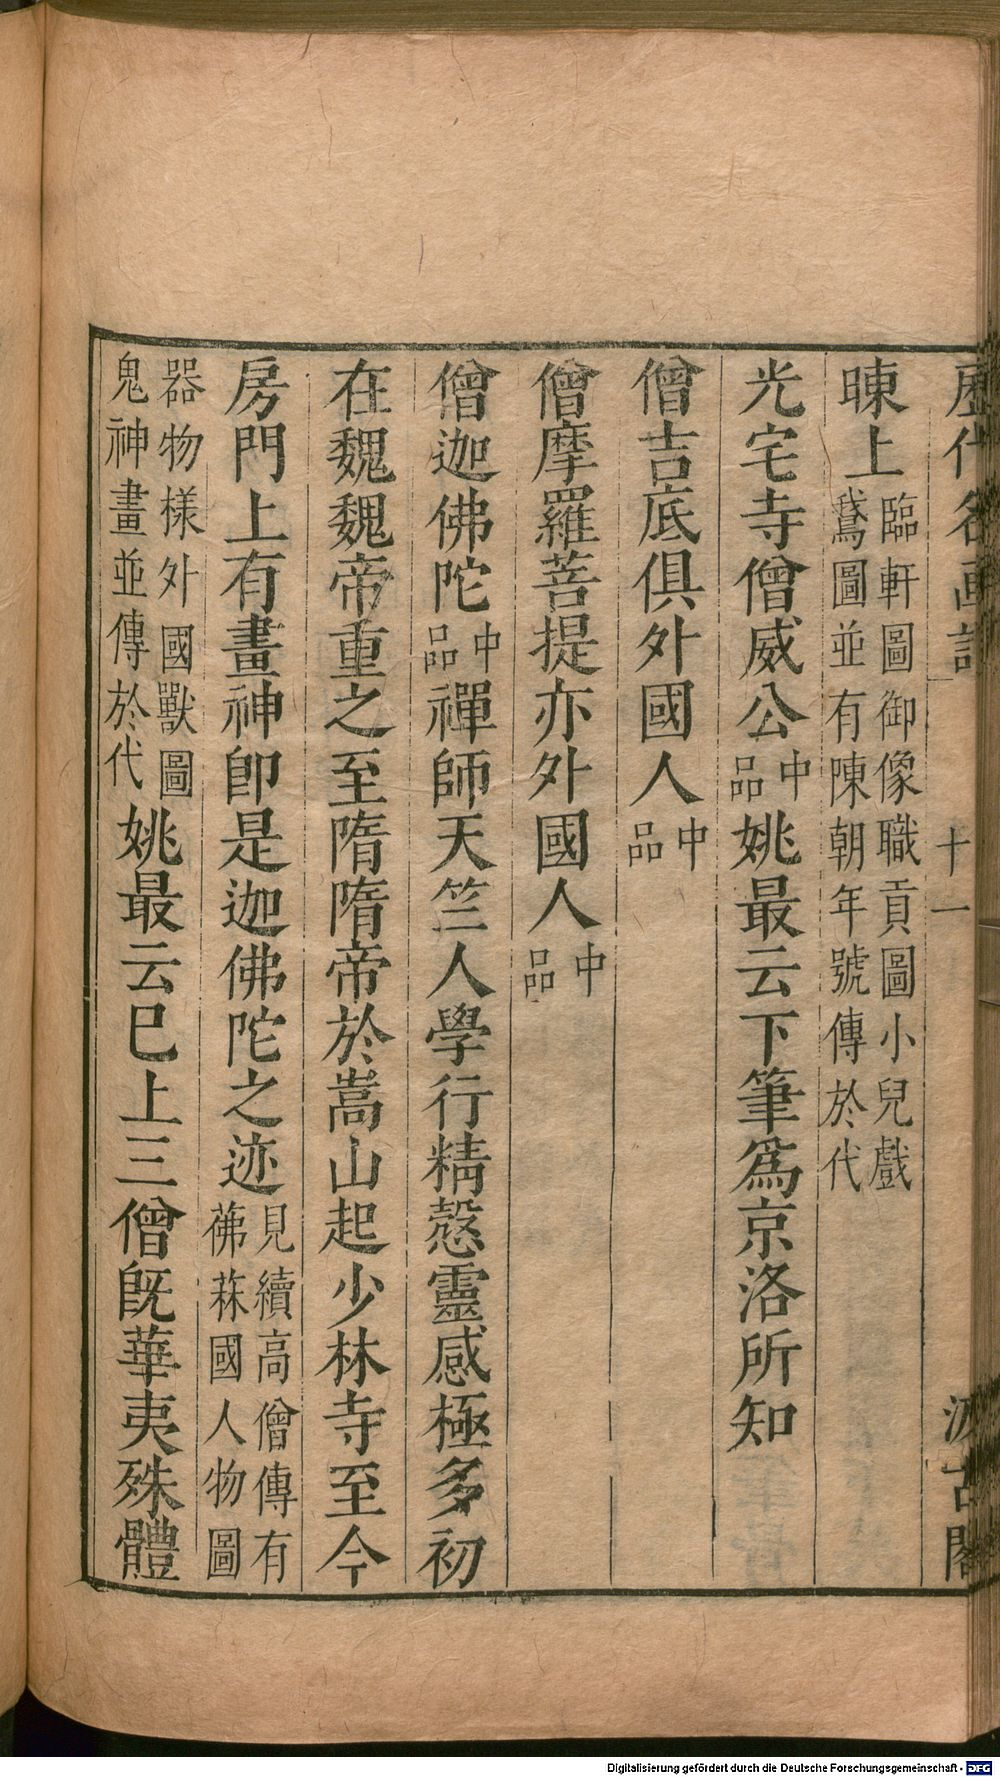 歷代名畫記 十一 汲古閣
暕上臨軒圖御像職貢圖小兒戲
鵞圖並有陳朝年號傳於代
光宅寺僧威公中品姚最云下筆爲京洛所知
僧吉底俱外國人中品
僧摩羅菩提亦外國人中品
僧迦佛陀中品禪師天竺人學行精慤靈感極多初
在魏魏帝重之至隋隋帝於嵩山起少林寺至今
房門上有畫神卽是迦佛陀之迹見續高僧傳有
茀菻國人物圖
器物樣外國獸圖
鬼神畫並傳於代姚最云巳上三僧旣華夷殊體
Digitalisierung gefördert durch die Deutsche Forschungsgemeinschaft - DFG